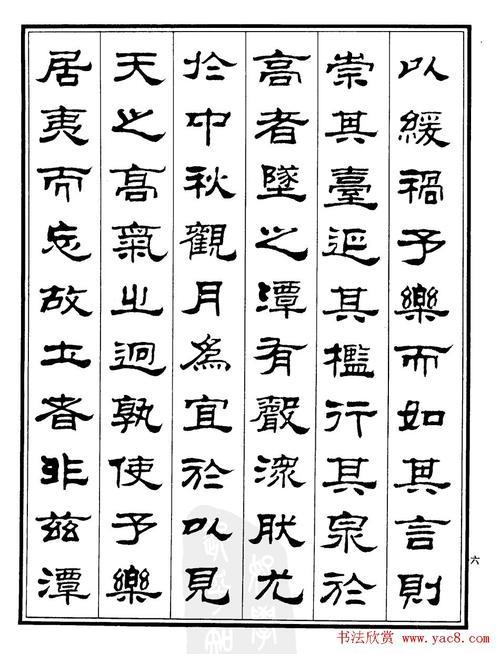 以緩禍予樂而如其言則
崇其臺延其檻行其泉於
高者墜之潭有聲潨肰尤
於中秋觀月為宜於以見
天之高氣之迥孰使予樂
居夷而忘故土者非茲潭
六
书法欣赏 www.yac8.com